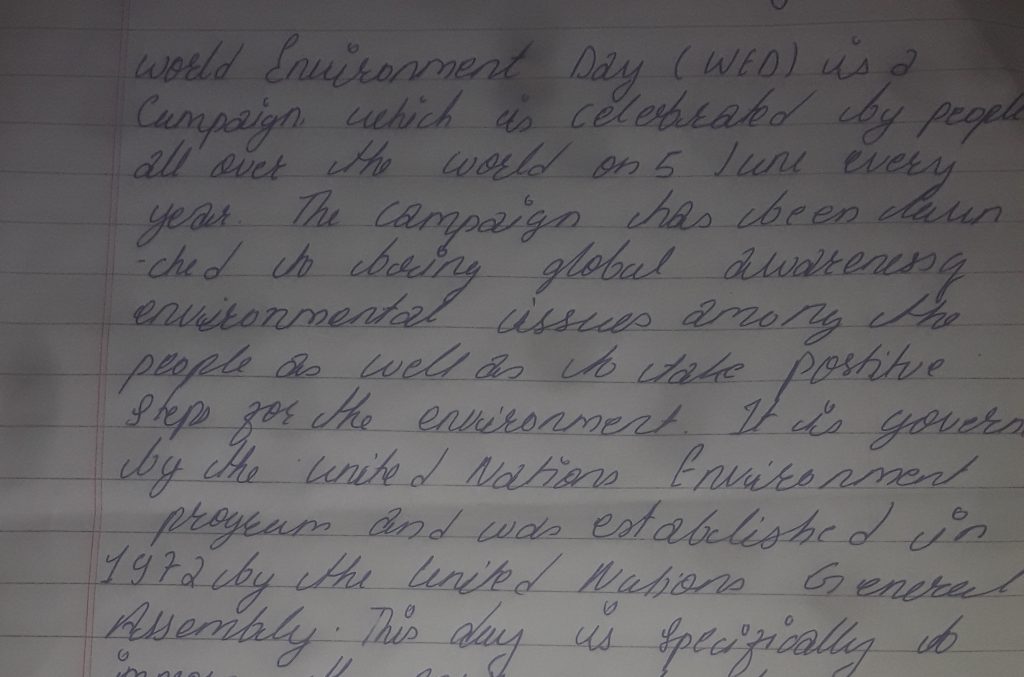 world Environment Day (WED) is a
Campaign which is celebrated by people
all over the world on 5 June every
year. The campaign has been laun
-ched to bring global awareness of
environmental issues among the
people as well as to take postitve
steps for the environment. It is govern
by the united Nations Environment
program and was established in
1972 by the United Nations General
Assembly. This day is specifically to